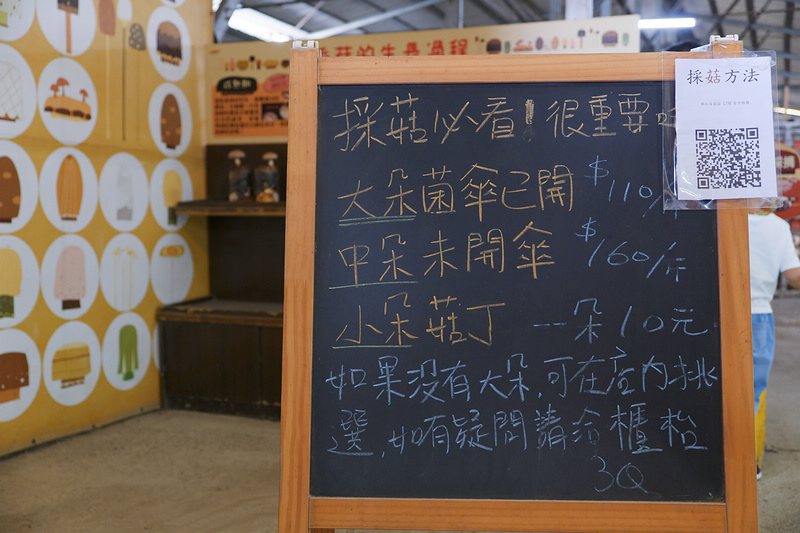 菇的生長過程
採菇方法
採菇必看！很重要
大朵菌傘已開 $110/
中朵未開傘 $160/斤
小朵菇丁 一朵10元
如果沒有大朵，可在店內挑
選，如有疑問請洽櫃枱
3Q